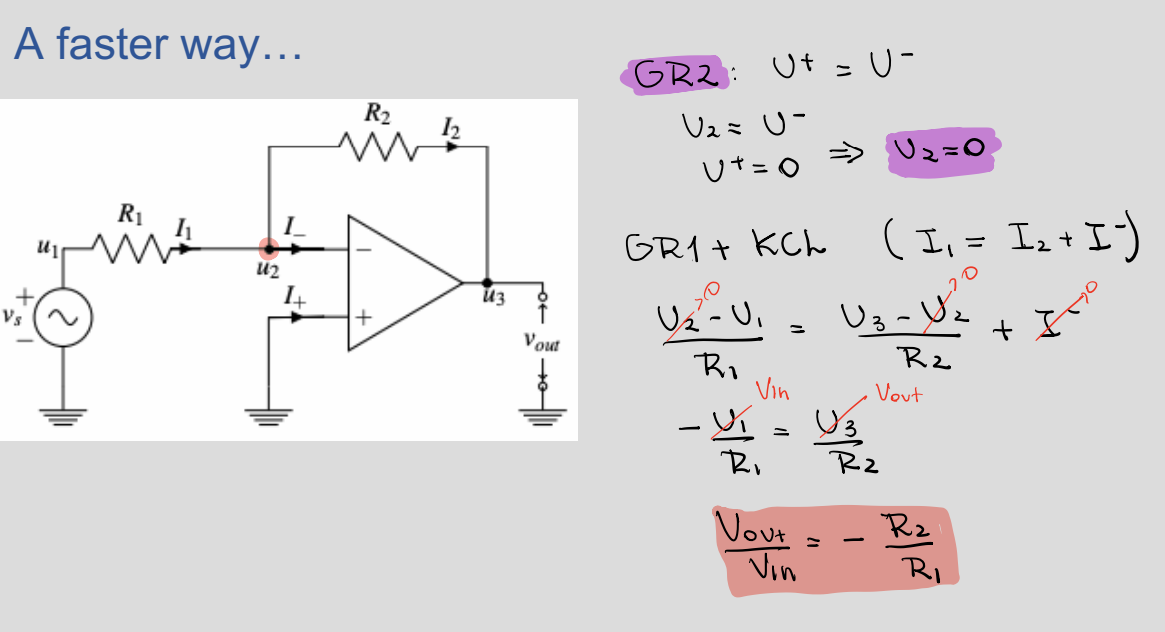 A faster way…
R₂
I₂
R₁
I₁
I₋
u₁
u₂
I₊
u₃
−
+
+
vₛ
−
v_out
GR2: U⁺ = U⁻
U₂ = U⁻
U⁺ = 0
⇒ U₂=0
GR1 + KCL (I₁ = I₂ + I⁻)
(U₂ →0 − U₁)/R₁ = (U₃ − U₂ →0)/R₂ + I⁻ →0
−U₁/R₁ = U₃/R₂
Vin
Vout
Vout/Vin = − R₂/R₁